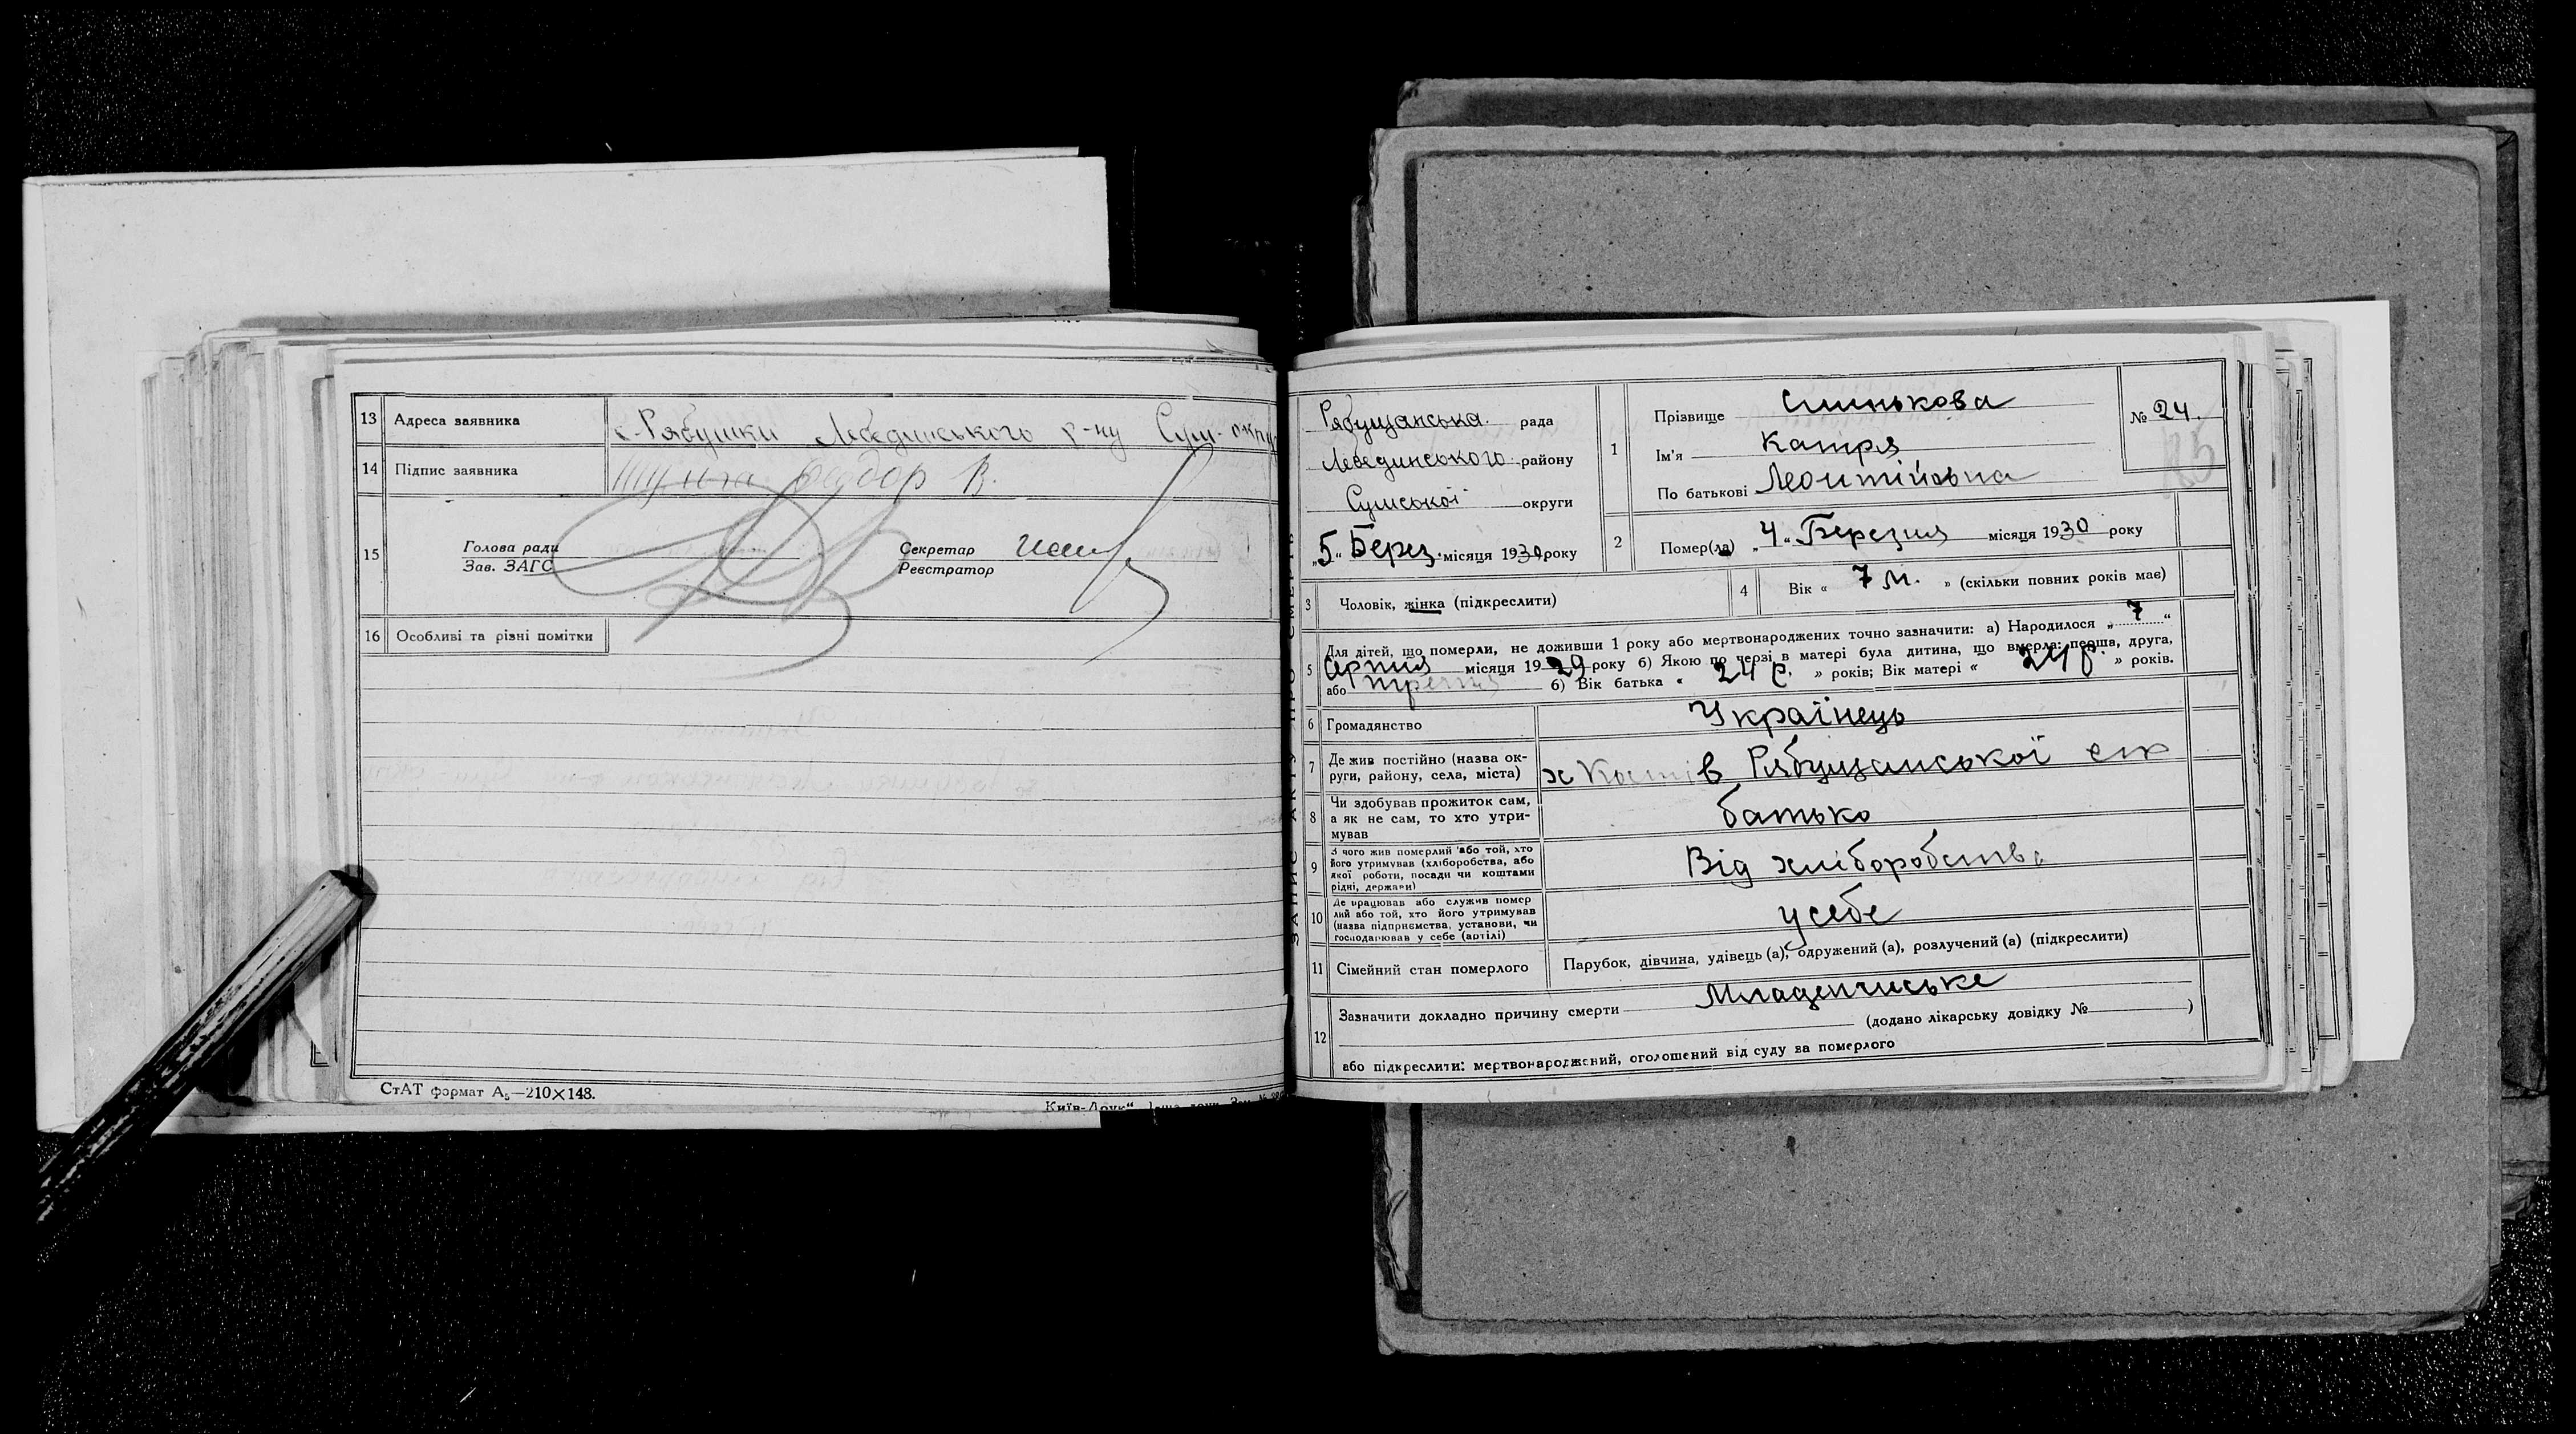 13 Адреса заявника с. Рябушки Лебединського р-ну Сум. окру
14 Підпис заявника Федор В.
15 Голова ради
Зав. ЗАГС
Секретар
Реєстратор
16 Особливі та різні помітки
СтАТ формат А₅—210×148.
ЗАПИС АКТУ ПРО СМЕРТЬ
Рябущанська рада
Лебединського району
Сумської округи
„5“ Берез. місяця 1930 року
1 Прізвище
Ім'я Катря
По батькові Леонтійовна
№ 24.
2 Помер(ла) „4“ Березня місяця 1930 року
3 Чоловік, жінка (підкреслити)
4 Вік « 7 м. » (скільки повних років має)
5 Для дітей, що померли, не доживши 1 року або мертвонароджених точно зазначити: а) Народилося „ 7 “
Серпня місяця 1929 року б) Якою по черзі в матері була дитина, що вмерла: перша, друга,
або третя б) Вік батька « 24 р. » років; Вік матері « 24 р. » років.
6 Громадянство Українець
7 Де жив постійно (назва ок-
руги, району, села, міста) Рябущанської
8 Чи здобував прожиток сам,
а як не сам, то хто утри-
мував батько
9 З чого жив померлий або той, хто
його утримував (хліборобства, або
якої роботи, посади чи коштами
рідні, держави) Від хліборобства
10 Де працював або служив помер
лий або той, хто його утримував
(назва підприємства, установи, чи
господарював у себе (артілі) у себе
11 Сімейний стан померлого Парубок, дівчина, удівець (а), одружений (а), розлучений (а) (підкреслити)
12 Зазначити докладно причину смерти Младенчиське
(додано лікарську довідку № )
або підкреслити: мертвонароджений, оголошений від суду за померлого